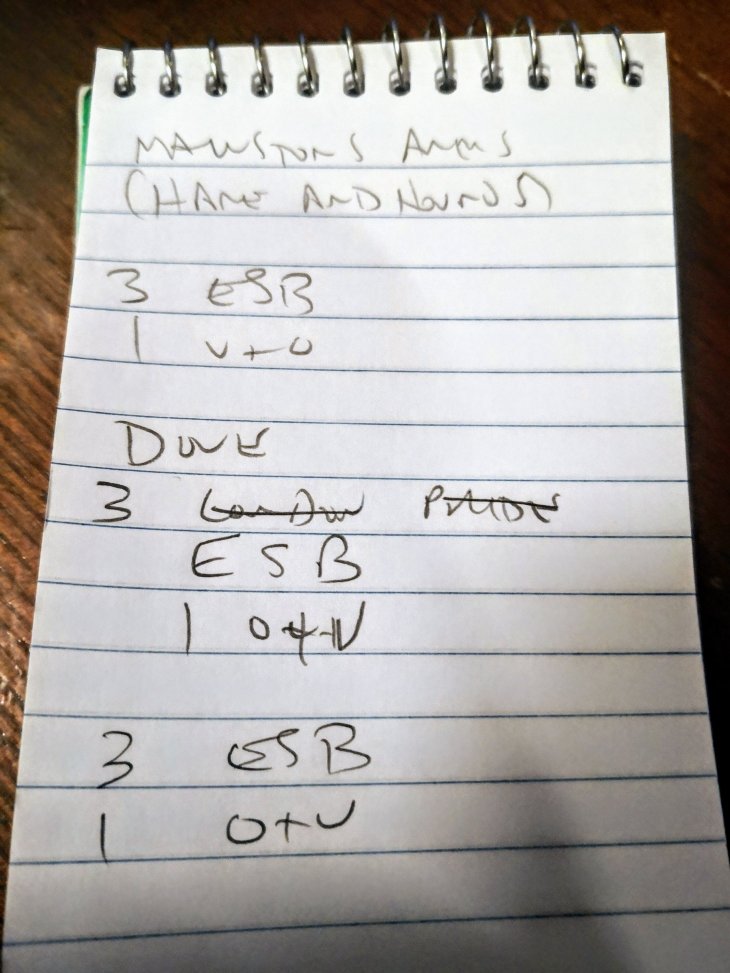 MAWSTONS ARMS
(HARE AND HOUNDS)
3 ESB
1 V+O
DOVE
3 London PRIDE
ESB
1 O+V
3 ESB
1 O+V